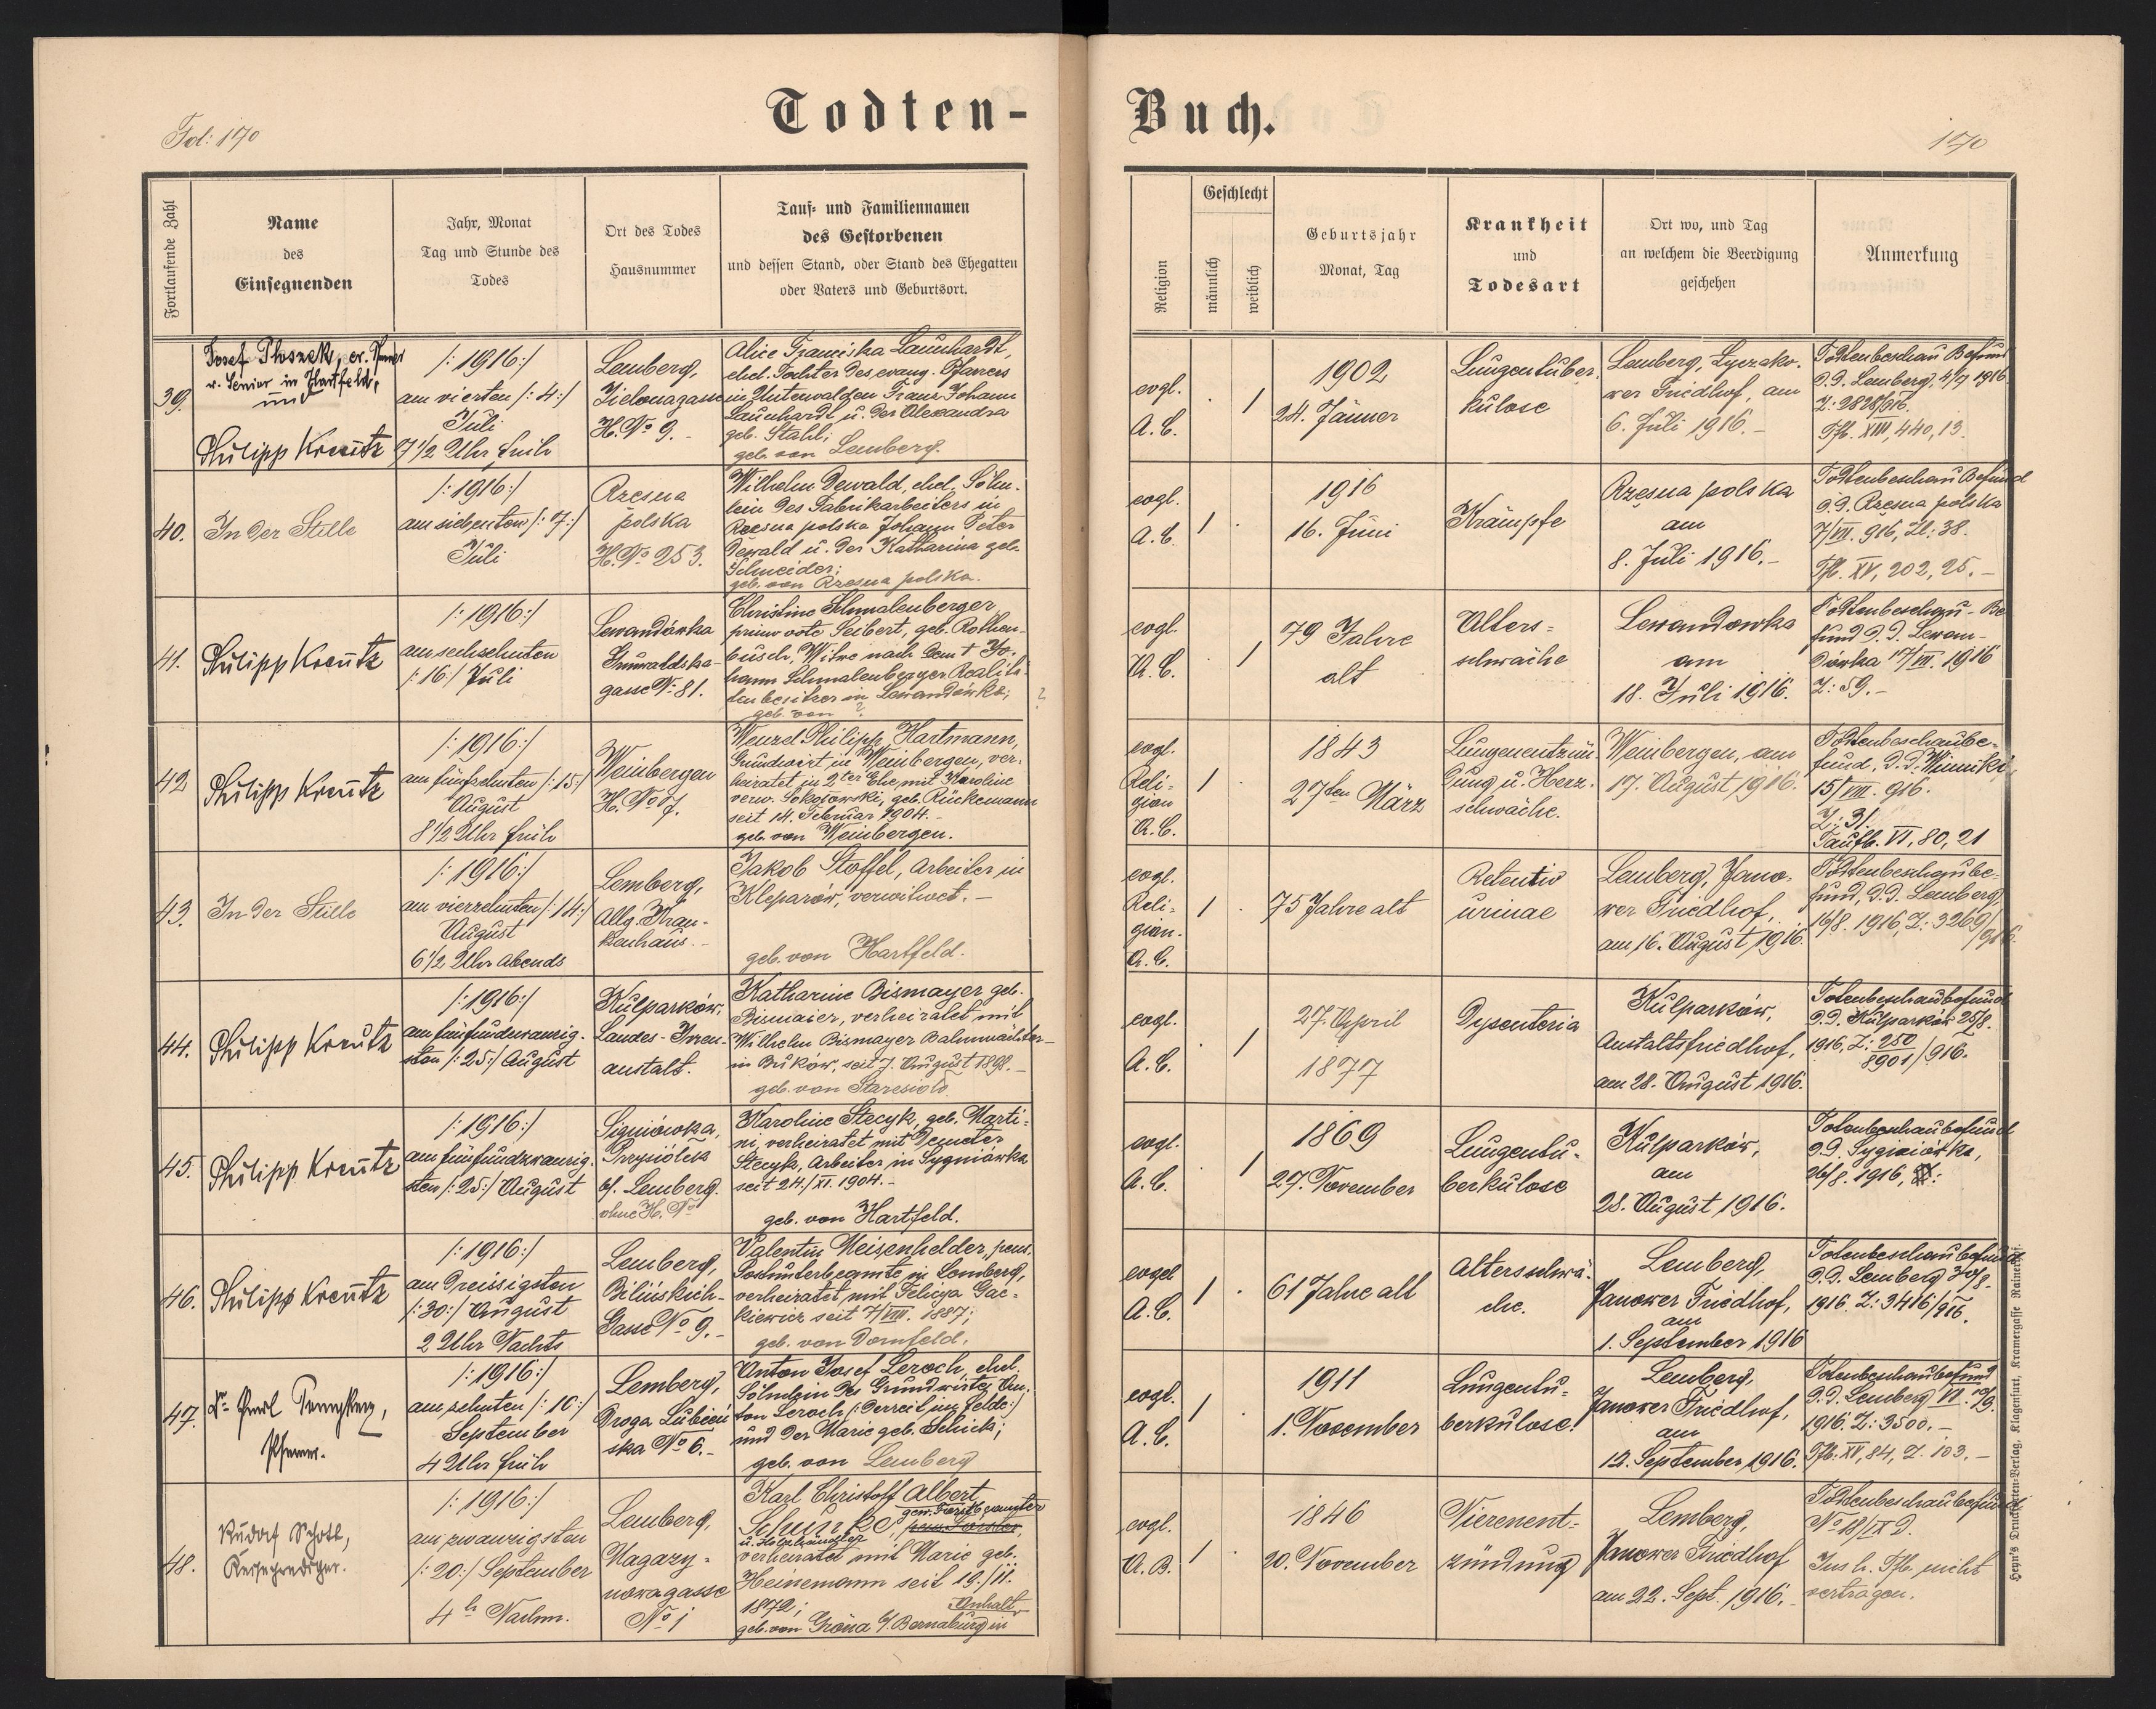 Todten-
Fol: 170
Fortlaufende Zahl
Name
des
Einsegnenden
Jahr, Monat
Tag und Stunde des
Todes
Ort des Todes
Hausnummer
Tauf- und Familiennamen
des Gestorbenen
und dessen Stand, oder Stand des Ehegatten
oder Vaters und Geburtsort.
39.
Josef Ploszek, ev. Pfarrer
u. Senior in Hartfeld,
und
Philipp Kreutz
/:1916:/
am vierten /:4:/
Juli
7 1/2 Uhr früh
Lemberg,
Zielonagasse
H. No 9. -
Alice Franciska Launhardt,
ehel. Tochter des evang. Pfarrers
in Unterwalden Franz Johann
Launhardt u. der Alexandra
geb. Stahl;
geb. von Lemberg.
40.
In der Stille
/:1916:/
am siebenten /:7:/
Juli
Rzesna
polska
H. No 253.
Wilhelm Dewald, ehel. Söhn-
lein des Fabrikarbeiters in
Rzesna polska Johann Peter
Dewald u. der Katharina geb.
Schneider;
geb. von Rzesna polska.
41.
Philipp Kreutz
/:1916:/
am sechzehnten
/:16:/ Juli
Lewandówka
Grunwaldska-
gasse No 81.
Christine Schmalenberger
primo voto Seibert, geb. Rothen-
busch, Witwe nach dem † Jo-
hann Schmalenberger Realitä-
tenbesitzer in Lewandówka;
geb. von ?
42
Philipp Kreutz
/:1916:/
am fünfzehnten /:15:/
August
8 1/2 Uhr früh
Weinbergen
H. No 7.
Wenzel Philipp Hartmann,
Grundwirt in Weinbergen, ver-
heiratet in 2ter Ehe mit Karoline
verw. Sokołowski, geb. Rückemann
seit 14. Februar 1904. -
geb. von Weinbergen.
43
In der Stille
/:1916:/
am vierzehnten /:14:/
August
6 1/2 Uhr abends
Lemberg,
Allg. Kran-
kenhaus. -
Jakob Stoffel, Arbeiter in
Kleparów, verwitwet. -
geb. von Hartfeld.
44.
Philipp Kreutz
/:1916:/
am fünfundzwanzig-
sten /:25:/ August
Kulparków,
Landes-Irren-
anstalt.
Katharine Bismayer geb.
Bismaier, verheiratet mit
Wilhelm Bismayer Bahnwächter
in Buków, seit 7. August 1898. -
geb. von Staresioło
45.
Philipp Kreutz
/:1916:/
am fünfundzwanzig-
sten /:25:/ August
Signiówka,
Przysiółek
bf. Lemberg.
ohne H. No
Karoline Stecyk, geb. Marti-
ni, verheiratet mit Demeter
Stecyk, Arbeiter in Sygniówka
seit 24./XI. 1904. -
geb. von Hartfeld.
46.
Philipp Kreutz
/:1916:/
am dreissigsten
/:30:/ August
2 Uhr Nachts
Lemberg,
Bilińskich-
Gasse No 9. -
Valentin Meisenhelder, pens.
Postunterbeamte in Lemberg,
verheiratet mit Felicya Gac-
kiewicz seit 7/VIII. 1887;
geb. von Dornfeld.
47.
Pfarrer.
/:1916:/
am zehnten /:10:/
September
4 Uhr früh
Lemberg,
Droga Lubień-
ska No 6. -
Anton Josef Leroch, ehel.
Söhnlein des Grundwirtes An-
ton Leroch /:derzeit im Felde:/
und der Marie geb. Schick;
geb. von Lemberg
48.
/:1916:/
am zwanzigsten
/:20:/ September
4 h Nachm.
Lemberg,
Magazy-
nowagasse
No 1
Karl Christoff Albert
Schunke, gew. Forstbeamter
pens. Förster,
u. Holzhändler
verheiratet mit Marie geb.
Heinemann seit 19./11.
1872;
geb. von Gröna b/ Bernaburg in
Anhalt
Buch.
170
Religion
Geschlecht
männlich
weiblich
Geburtsjahr
Monat, Tag
Krankheit
und
Todesart
Ort wo, und Tag
an welchem die Beerdigung
geschehen
Anmerkung
evgl.
A. C.
1
1902
24. Jänner
Lungentuber-
kulose
Lemberg, Lyczako-
wer Friedhof, am
6. Juli 1916. -
Todtenbeschau Befund
d. d. Lemberg, 4/7 1916
Z: 2828/916.
Tfb. XIII, 440, 13.
evgl.
A. C.
1
1916
16. Juni
Krämpfe
Rzęsna polska
am
8. Juli 1916. -
Todtenbeschau Befund
d. d. Rzesna polska
7/VII. 916, Zl: 38.
Tfb. XV, 202, 25. -
?
evgl.
A. C.
1
79 Jahre
alt
Alters-
schwäche
Lewandowka
am
18. Juli 1916.
Todtenbeschau-Be
fund d. d. Lewan-
dówka 17/VII. 1916
Z: 59. -
evgl.
Reli-
gion
A. C.
1
1843
27ten März
Lungenentzün-
dung u. Herz-
schwäche.
Weinbergen, am
17. August 1916.
Todtenbeschaube-
fund, d. d. Winniki
15/VIII. 916.
Z: 31.
Taufb. VI, 80, 21
evgl.
Reli-
gion.
A. C.
1
75 Jahre alt
Retentio
urinae
Lemberg, Jano-
wer Friedhof,
am 16. August 1916.
Todtenbeschaube-
fund, d. d. Lemberg
16/8. 1916, Z: 3269/916.
evgl.
A. C.
1
27. April
1877
Dysenteria
Kulparków,
Anstaltsfriedhof,
am 28. August 1916.
Totenbeschaubefund
d. d. Kulparków 25/8.
1916, Z: 250
8901/916.
evgl.
A. C.
1
1869
27. November
Lungentu-
berkulose
Kulparków,
am
28. August 1916.
Totenbeschaubefund
d. d. Sygniówka,
26/8. 1916,
evgel
A. C.
1
61 Jahre alt
Altersschwä-
che.
Lemberg,
Janower Friedhof,
am
1. September 1916
Totenbeschaubefund
d. d. Lemberg 30/8.
1916. Z: 3416/916.
evgl.
A. C.
1
1911
1. November
Lungentu-
berkulose.
Lemberg,
Janower Friedhof,
am
12. September 1916.
Totenbeschaubefund
d. d. Lemberg VI. 10/9.
1916. Z: 3500. -
Tfb: XV, 84, Z. 103. -
evgl.
A. B.
1
1846
20. November
Nierenent-
zündung
Lemberg,
Janower Friedhof
am 22. Sept. 1916. -
Todtenbeschaubefund
No 18/IX d.
Ins h. Tfb. nicht
vertragen.
Heyn's Drucksorten-Verlag, Klagenfurt, Kramergasse Rainerhof.